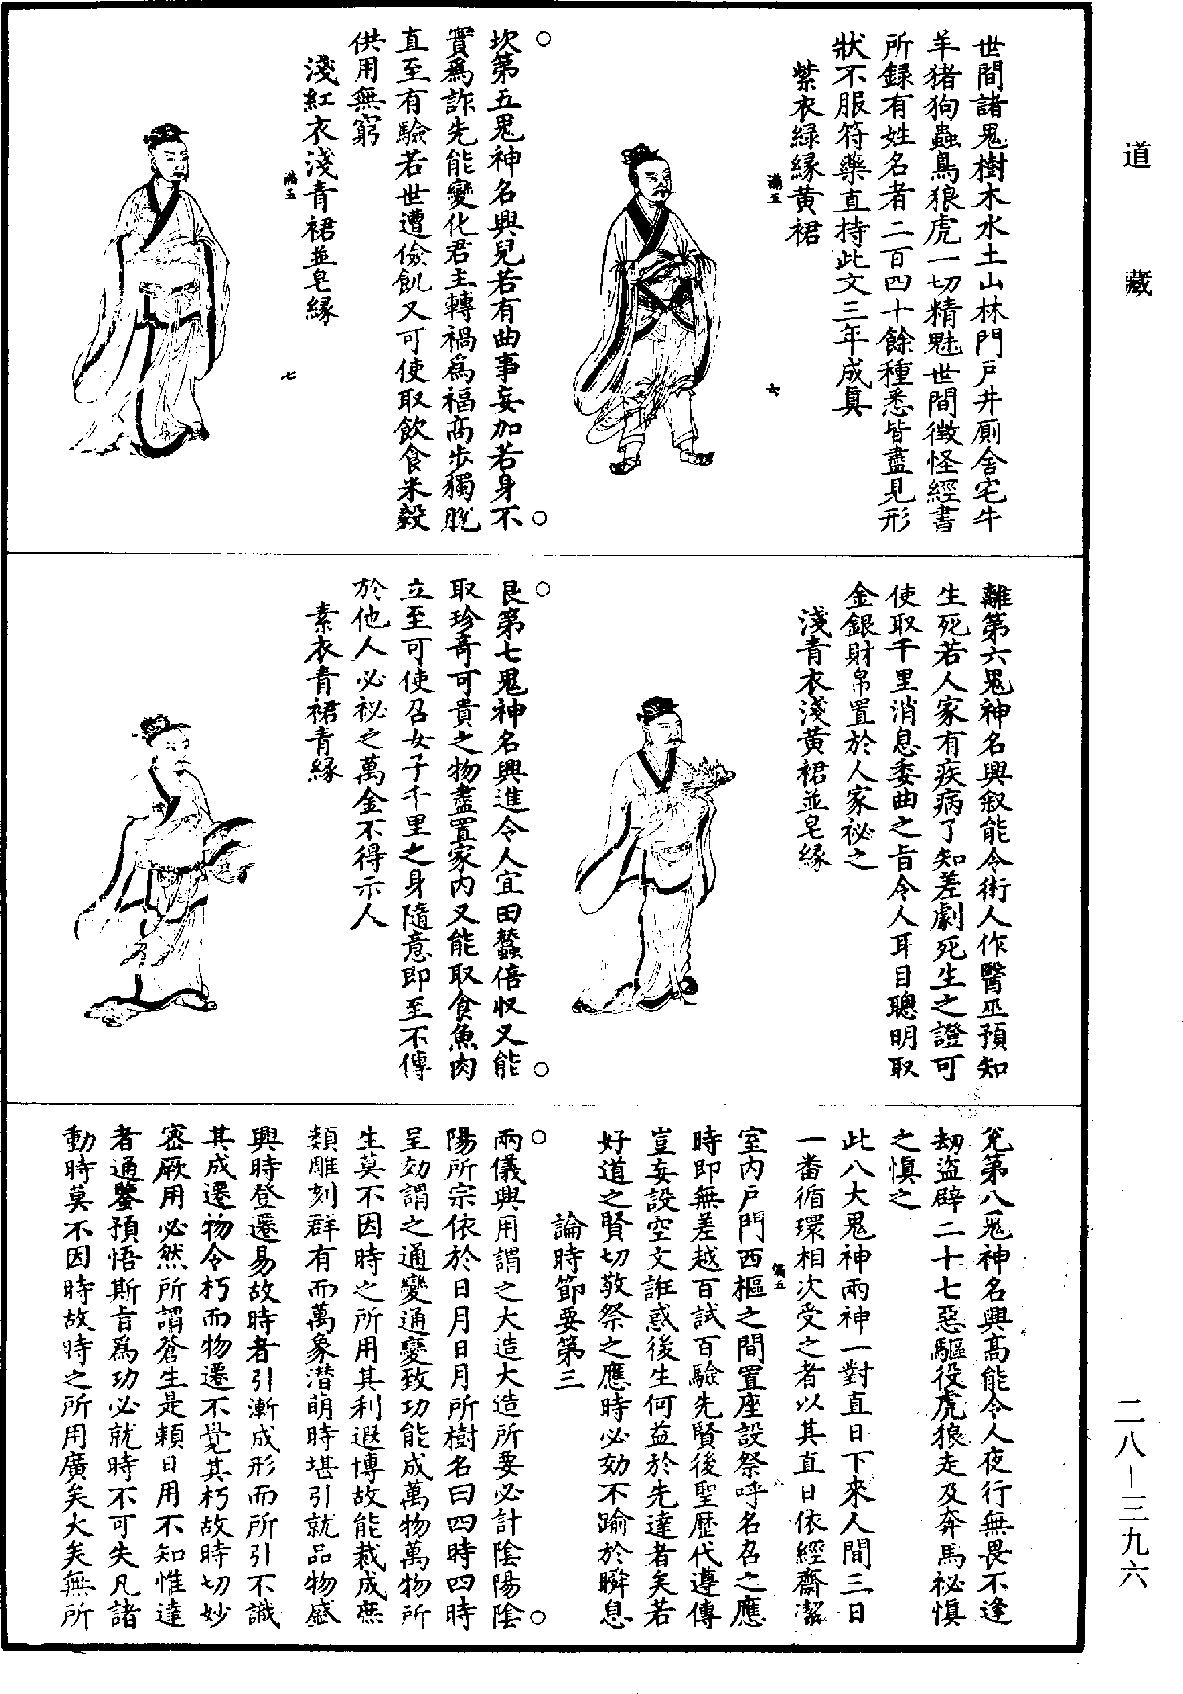 道藏
世間諸鬼樹木水土山林門戶井厠舍宅牛
羊猪狗蟲鳥狼虎一切精魅世間徵怪經書
所録有姓名者二百四十餘種悉皆盡見形
狀不服符藥直持此文三年成真
紫衣緑縁黄裙
滿五
六
坎第五鬼神名興兒若有曲事妄加若身不
實爲詐先能變化君主轉禍爲福高步獨脫
直至有驗若世遭儉飢又可使取飲食米穀
供用無窮
淺紅衣淺青裙並皂縁
滿五
七
離第六鬼神名興叙能令術人作醫巫預知
生死若人家有疾病了知差劇死生之證可
使取千里消息委曲之旨令人耳目聰明取
金銀財帛置於人家祕之
淺青衣淺黄裙並皂縁
艮第七鬼神名興進令人宜田蠶倍收又能
取珍奇可貴之物盡置家内又能取食魚肉
立至可使召女子千里之身隨意即至不傳
於他人必祕之萬金不得示人
素衣青裙青縁
兊第八鬼神名興高能令人夜行無畏不逢
劫盜辟二十七惡驅役虎狼走及奔馬祕慎
之慎之
此八大鬼神兩神一對直日下來人間三日
一番循環相次受之者以其直日依經齋潔
滿五
室内戶門西樞之間置座設祭呼名召之應
時即無差越百試百驗先賢後聖歷代遵傳
豈妄設空文誑惑後生何益於先達者矣若
好道之賢切敬祭之應時必効不踰於瞬息
論時節要第三
兩儀興用謂之大造大造所要必計陰陽陰
陽所宗依於日月日月所樹名曰四時四時
呈効謂之通變通變致功能成萬物萬物所
生莫不因時之所用其利遐博故能裁成庶
類雕刻群有而萬象潜萌時堪引就品物盛
興時登遷易故時者引漸成形而所引不識
其成遷物令朽而物遷不覺其朽故時切妙
密厥用必然所謂蒼生是頼日用不知惟達
者通鑒預悟斯旨爲功必就時不可失凡諸
動時莫不因時故時之所用廣矣大矣無所
二八—三九六